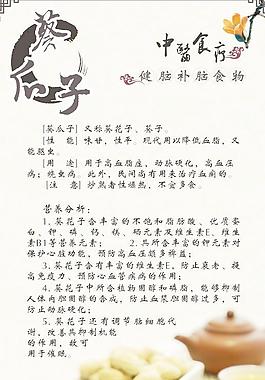 葵
瓜
子
中醫食疗
健脑补脑食物
[葵瓜子] 又称葵花子、葵子。
[性 能] 味甘，性平。现代用以降低血脂，又能驱虫。
[用 途] 用于高血脂症，动脉硬化，高血压病；蛲虫病。此外，民间尚有用来治疗血痢的。
[注 意] 炒熟者性燥热，不宜多食。
营养分析：
1. 葵花子含丰富的不饱和脂肪酸、优质蛋白、钾、磷、钙、镁、硒元素及维生素E、维生素B1等营养元素； 2. 其所含丰富的钾元素对保护心脏功能，预防高血压颇多裨益；
3. 葵花子含有丰富的维生素E，防止衰老、提高免疫力、预防心血管疾病的作用；
4. 葵花子中所含植物固醇和磷脂，能够抑制人体内胆固醇的合成，防止血浆胆固醇过多，可防止动脉硬化；
5. 葵花子还有调节脑细胞代谢，改善其抑制机能的作用，故可用于催眠。